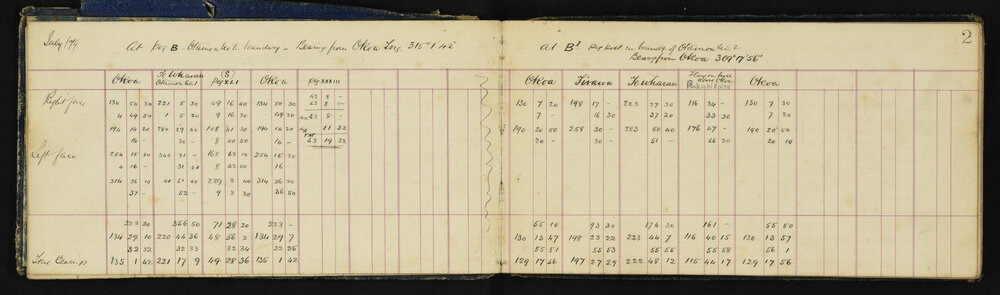 July 17th
At Peg B Otamoa No. 2 boundary - Bearing from Okoa Trig. 315° 1' 42"
Okoa Te Wharau (S) Okoa Peg XXXIII
Otamoa No. 1 Peg XLI
Right face 134 50 30 221 5 30 49 16 40 134 50 30 43 8 -
4 49 50 1 5 20 9 16 20 - 49 20 43 8 -
194 14 20 280 29 40 108 41 30 194 14 20 11 32
14 - 30 - 8 40 50 14 - 43 19 32
Left face 254 15 30 340 31 - 168 43 10 254 15 30
4 16 - 31 40 8 42 50 16 -
314 36 10 40 51 40 229 3 40 314 36 20
37 - 52 - 9 3 30 36 50
233 20 366 50 71 28 20 233 -
134 29 10 220 44 36 48 56 2 134 29 7
32 32 32 33 32 34 32 35
True Bearings 135 1 42 221 17 9 49 28 36 135 1 42
2
At B² Peg Post on boundary of Otamoa No. 2
Bearing from Okoa 309° 17' 56"
Okoa Tirawa Te Wharau Okoa
130 7 20 198 17 - 223 37 30 116 34 - 130 7 30
7 - 16 30 37 20 33 30 7 20
190 20 50 258 30 - 283 50 40 176 47 - 190 20 50
20 - 30 - 51 - 46 30 20 10
55 10 93 30 176 30 161 - 55 50
130 13 47 198 23 22 223 44 7 116 40 15 130 13 57
55 51 55 53 55 55 55 58 56 1
129 17 56 197 27 29 222 48 12 115 44 17 129 17 56